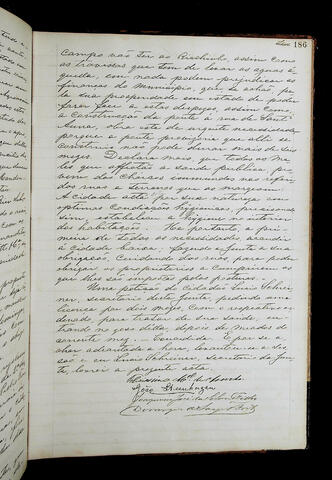 186
campo não ter ao Riachinho, assim como
as travessas que tem de levar as aguas á
guida, em nada podem prejudicar as
finanças do Municipio, que se achão, pe-
la sua prosperidade em estado de poder
fazer face a estas despezas, assim como
a construcção da ponte á rua de Sant'
Anna, obra esta de urgente necessidade
porque a ponte provisoria que alli se
construio não pode durar mais de dois
mezes. Declara mais, que todos os ma-
les que affectão a saude publica, pro-
vem dos charcos immundos nas
das ruas e terrenos que as margeam.
A cidade alta por sua natureza, com
optimas condicções hygienicas,
sim, estabelecer a Hygiene no interior
das habitações. Por portanto, a pri-
meira de todas as necessidades acudir
á cidade baixa. Segundo a Junta a sua
obrigação, cuidando das ruas, para poder
obrigar os proprietarios a cumprirem os
que lhes são impostos pelas posturas.
Uma petição do cidadão Luis Schrei-
ner, secretario desta Junta, pedindo uma
licença por dois mezes, com o respectivo or-
denado, para tratar de sua saude, en-
trando no goso della depois de meiados do
corrente mez. Concedida. E por se a-
char adeantada a hora, levantou-se a ses-
são e eu Luis Schreiner, secretario da Jun-
ta, lavrei a presente acta.
João
Joaquim José da Silva
Domingos